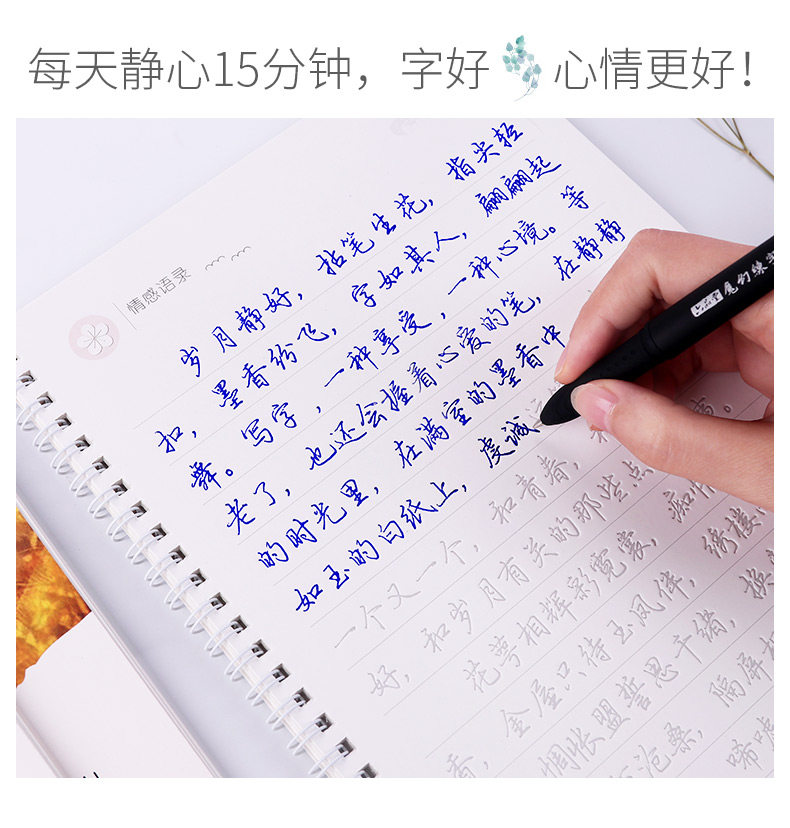 每天静心15分钟，字好心情更好！
情感语录
岁月静好，拈笔生花，指尖轻
扣，墨香纷飞，字如其人，翩翩起
舞。写字，一种享受，一种心境。等
老了，也还会握着心爱的笔，在静静
的时光里，在满室的墨香中
如玉的白纸上，虔诚
一个又一个，和青春，和
好，和岁月有关的那些点
花萼相辉彩霓裳，痴情
香，金屋只待玉凤伴，绣楼
惆怅盟誓思千绪，
沧桑，隔屏相
唏嘘
六品堂 魔幻练字